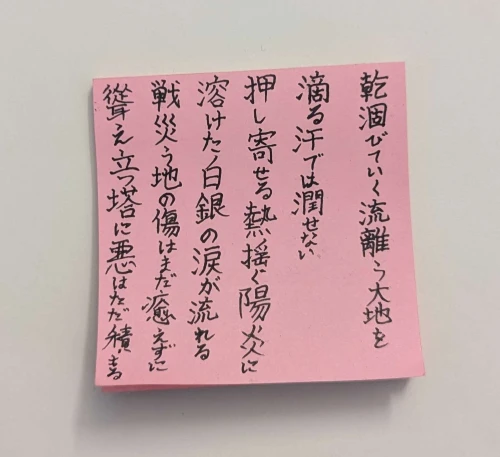 乾涸びていく流離う大地を
滴る汗では潤せない
押し寄せる熱揺ぐ陽炎に
溶けた白銀の涙が流れる
戦災う地の傷はまだ癒えずに
聳え立つ塔に悪はただ積もる